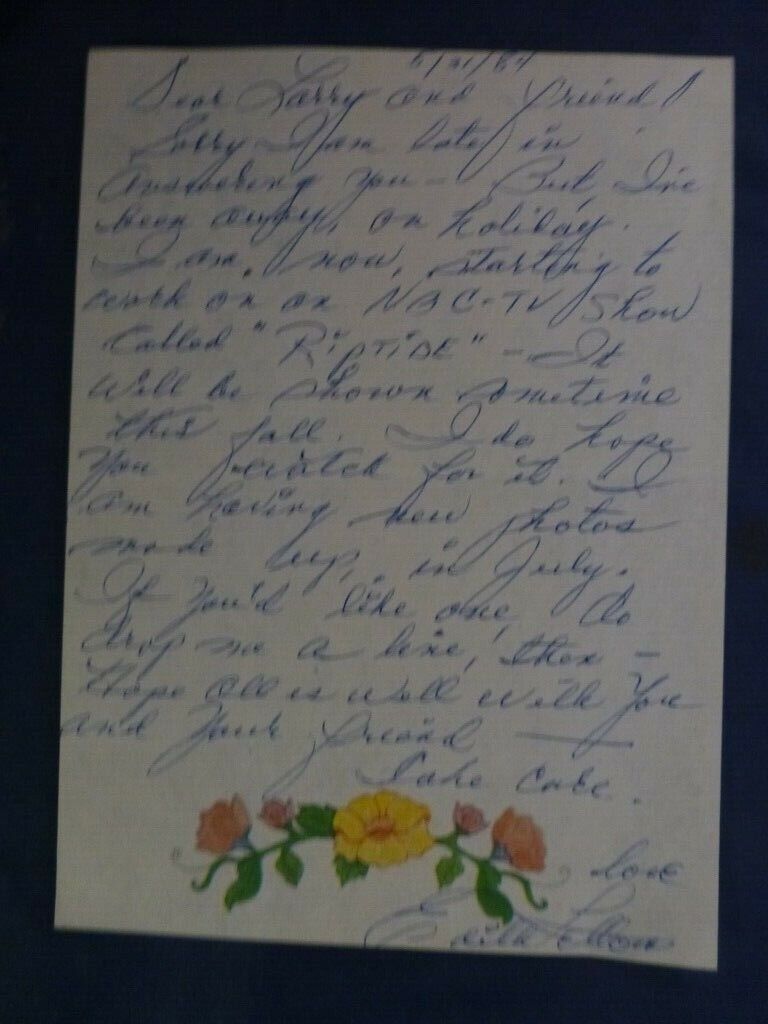 5/31/84
Dear Larry and friend!
Sorry I am late in
answering you — But, I've
been away, on holiday.
I am, now, starting to
work on an NBC-TV Show
called "RIPTIDE" — It
will be shown sometime
this fall. I do hope
you watch for it. I
am having new photos
made up, in July.
If you'd like one, do
drop me a line, then —
Hope all is well with you
and your friend —
Take care.
Love
Edith Fellows